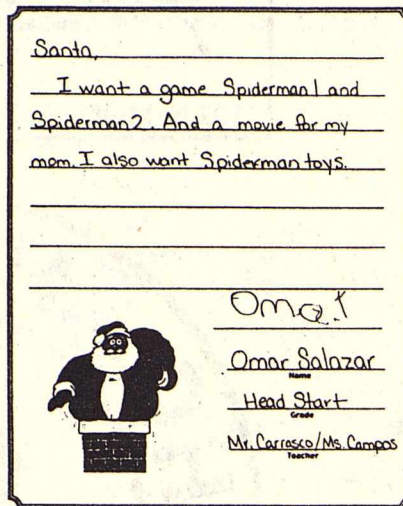 Santa,
I want a game Spiderman 1 and
Spiderman 2. And a movie for my
mom. I also want Spiderman toys.
Omar
Omar Salazar
Name
Head Start
Grade
Mr. Carrasco/Ms. Campos
Teacher